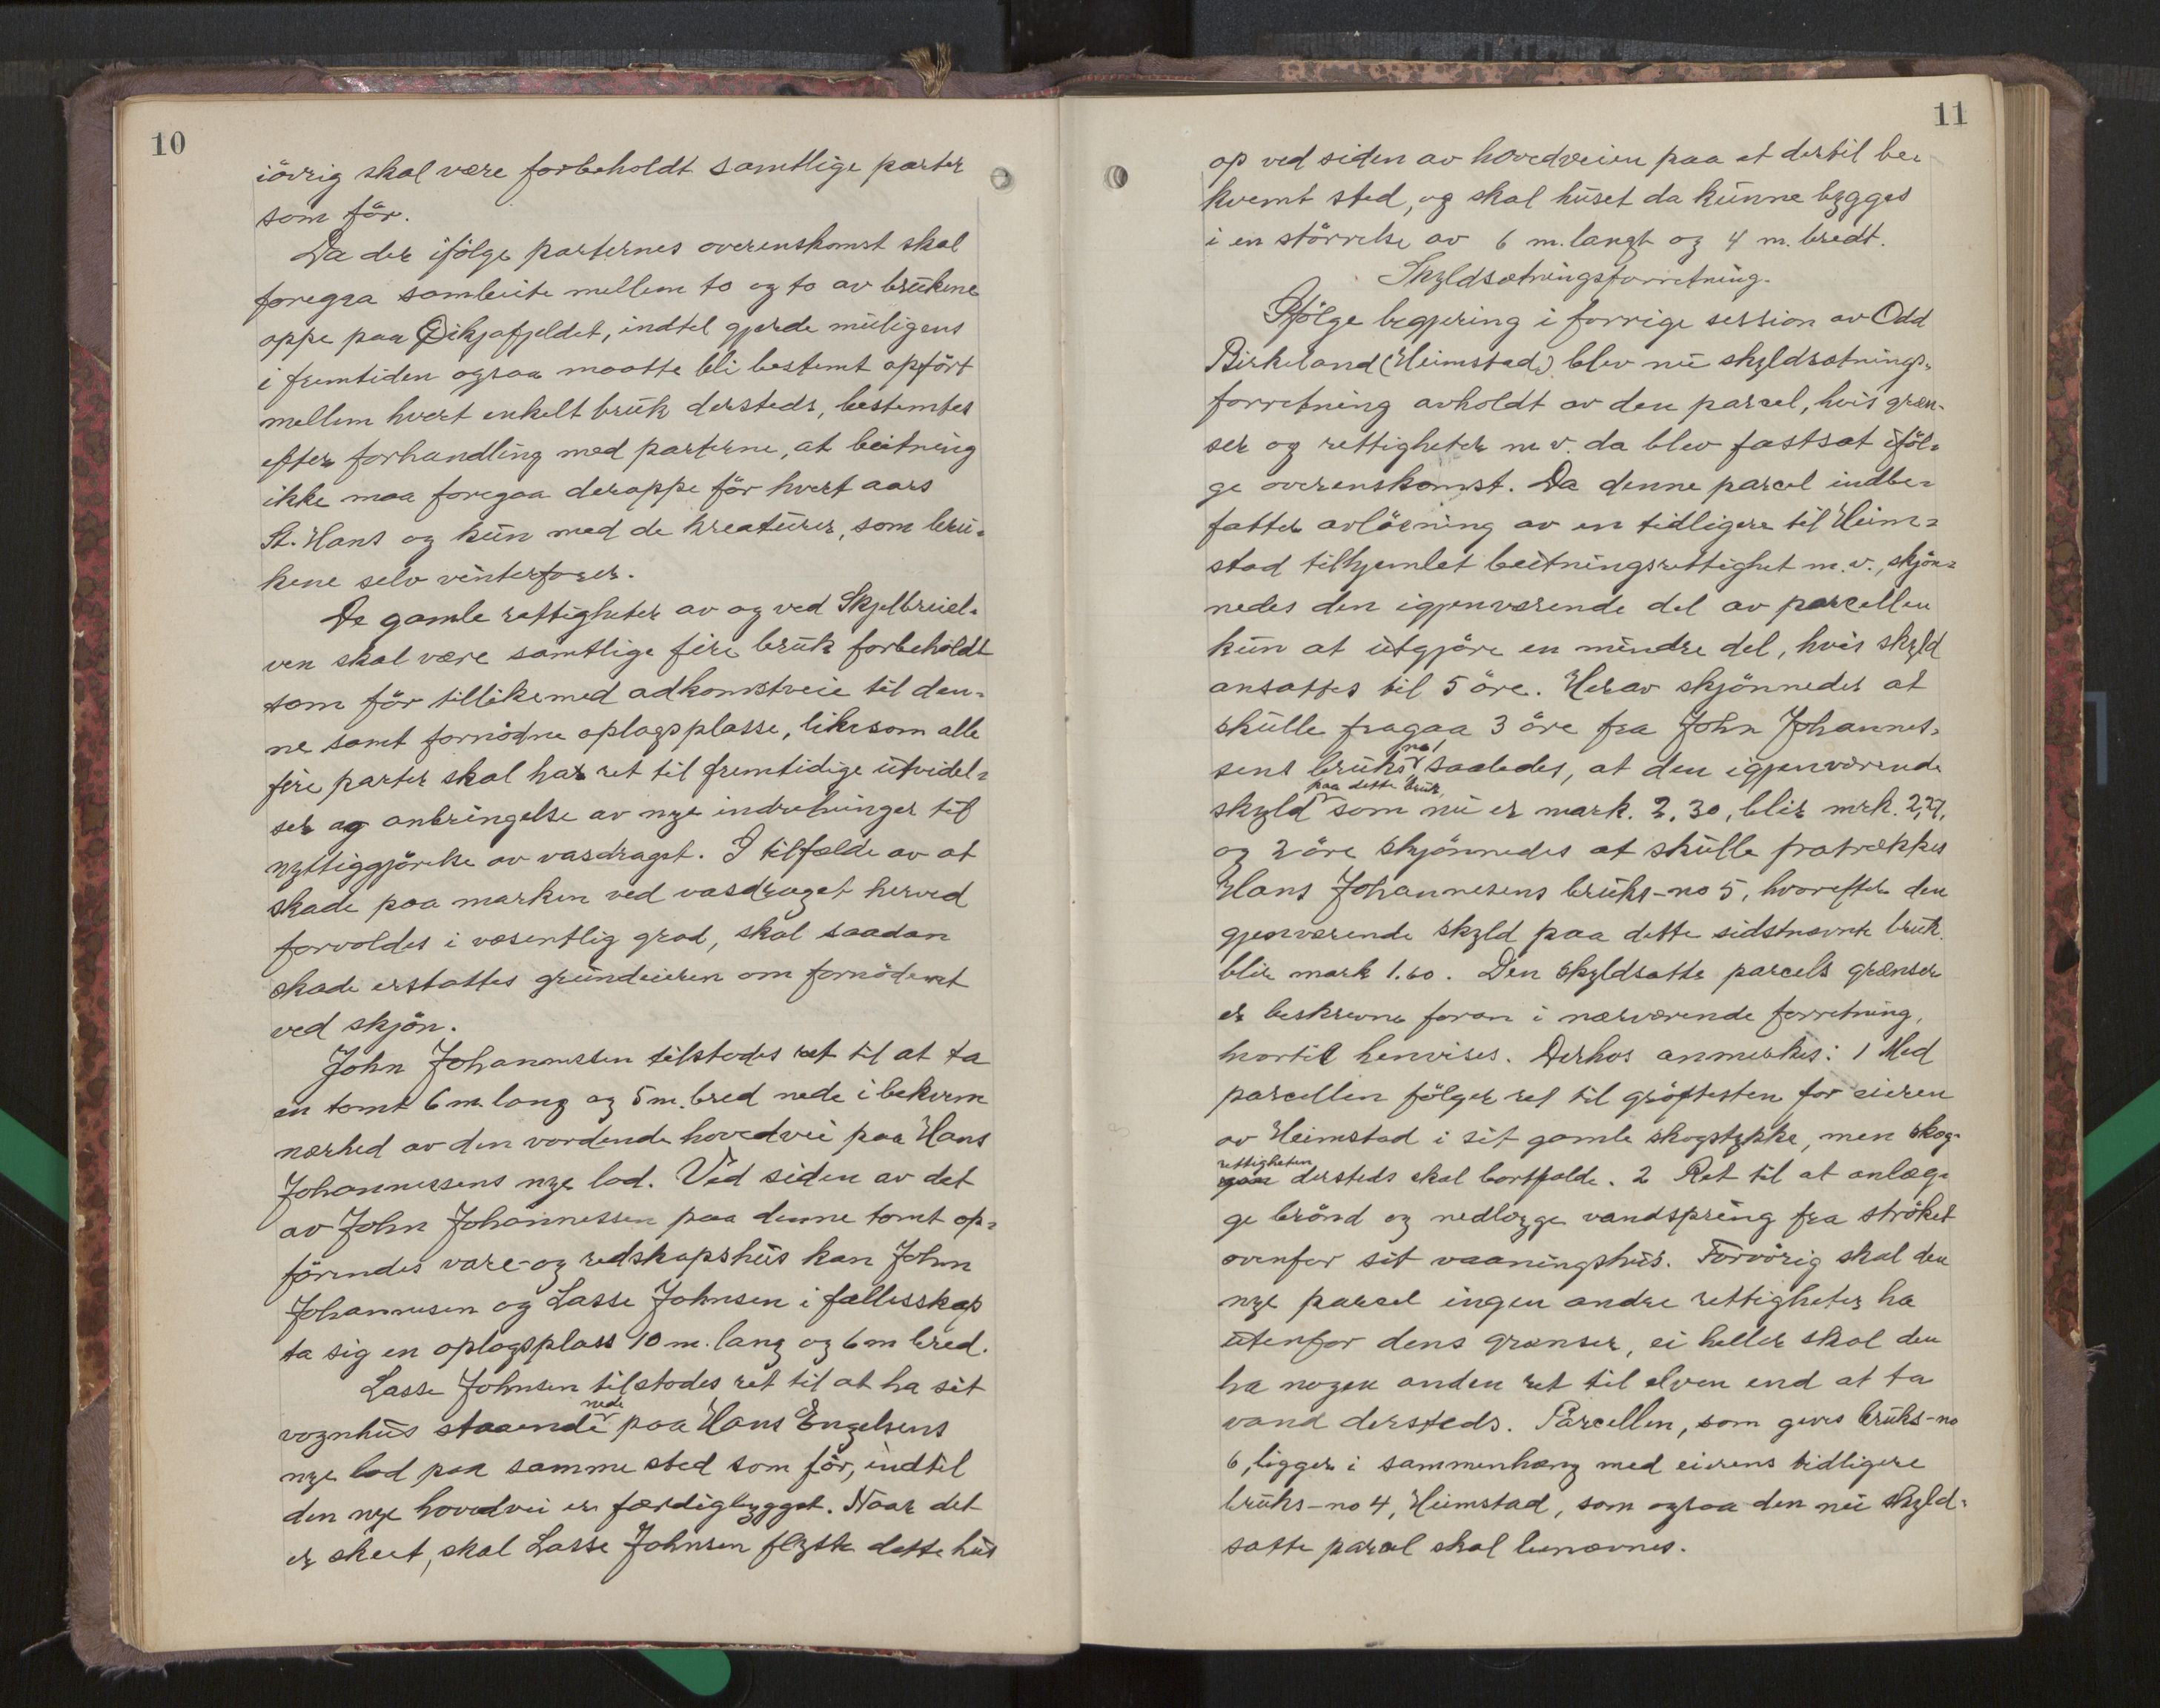 10
iövrig skal være forbeholdt samtlige parter
som för.
Da der ifölge parternes overenskomst skal
foregaa sambeite mellem to og to av brukene
oppe paa Dikjafjeldet, indtil gjerde muligens
i fremtiden ogsaa maatte bli bestemt opfört
mellem hvert enkelt bruk dersteds, bestemtes
efter forhandling med parterne, at beitning
ikke maa foregaa deroppe för hvert aars
St. Hans og kun med de kreaturer, som bru-
kene selv vinterforer.
De gamle rettigheter av og ved Skjelbreiel-
ven skal være samtlige fire bruk forbeholdt
som för tillikemed adkomstveie til den-
ne samt fornödne oplagsplasse, likesom alle
fire parter skal ha ret til fremtidige utvidel-
ser og anbringelse av nye indretninger til
nyttiggjörelse av vasdraget. I tilfælde av at
skade paa marken ved vasdraget herved
forvoldes i væsentlig grad, skal saadan
skade erstattes grundeieren om fornödent
ved skjön.
John Johannessen tilstodes ret til at ta
en tomt 6 m. lang og 5 m. bred nede i bekvem
nærhed av den vordende hovedvei paa Hans
Johannessens nye lod. Ved siden av det
av John Johannessen paa denne tomt op-
förendes vare- og redskapshus kan John
Johannesen og Lasse Johnsen i fællesskap
ta sig en oplagsplass 10 m. lang og 6 m bred.
Lasse Johnsen tilstodes ret til at ha sit
nede
vognhus staaende paa Hans Engelsens
nye lod paa samme sted som för, indtil
den nye hovedvei er færdigbygget. Naar det
er skeet, skal Lasse Johnsen flytte dette hus
11
op ved siden av hovedveien paa et dertil be-
kvemt sted, og skal huset da kunne bygges
i en störrelse av 6 m. langt og 4 m. bredt.
Skyldsætningsforretning.
Ifölge begjæring i forrige session av Odd
Birkeland (Heimstad) blev nu skyldsætnings-
forretning avholdt av den parcel, hvis græn-
ser og rettigheter m. v. da blev fastsat iföl-
ge overenskomst. Da denne parcel indbe-
fatter avlösning av en tidligere til Heim-
stad tilhjemlet beitningsrettighet m. v., skjön-
nedes den igjenværende del av parcellen
kun at utgjöre en mindre del, hvis skyld
ansattes til 5 öre. Herav skjönnedes at
skulle fragaa 3 öre fra John Johannes-
no 1
sens bruks saaledes, at den igjenværende
paa dette bruk,
skyld som nu er mark. 2,30, blir mrk. 2,27,
og 2 öre skjönnedes at skulle fratrækkes
Hans Johannesens bruks-no 5, hvorefter den
gjenværende skyld paa dette sidstnævnte bruk
blir mark 1.60. Den skyldsatte parcels grænser
er beskrevne foran i nærværende forretning,
hvortil henvises. Derhos anmerkes: 1 Med
parcellen fölger ret til gröftesten for eieren
av Heimstad i sit gamle skogstykke, men skog-
rettigheten
dersteds skal bortfalde. 2 Ret til at anlæg-
ge brönd og nedlægge vandspring fra ströket
ovenfor sit vaaningshus. Forövrig skal den
nye parcel ingen andre rettigheter ha
utenfor dens grænser, ei heller skal den
ha nogen anden ret til elven end at ta
vand dersteds. Parcellen, som gives bruks-no
6, ligger i sammenhæng med eierens tidligere
bruks-no 4, Heimstad, som ogsaa den nu skyld-
satte parcel skal benævnes.